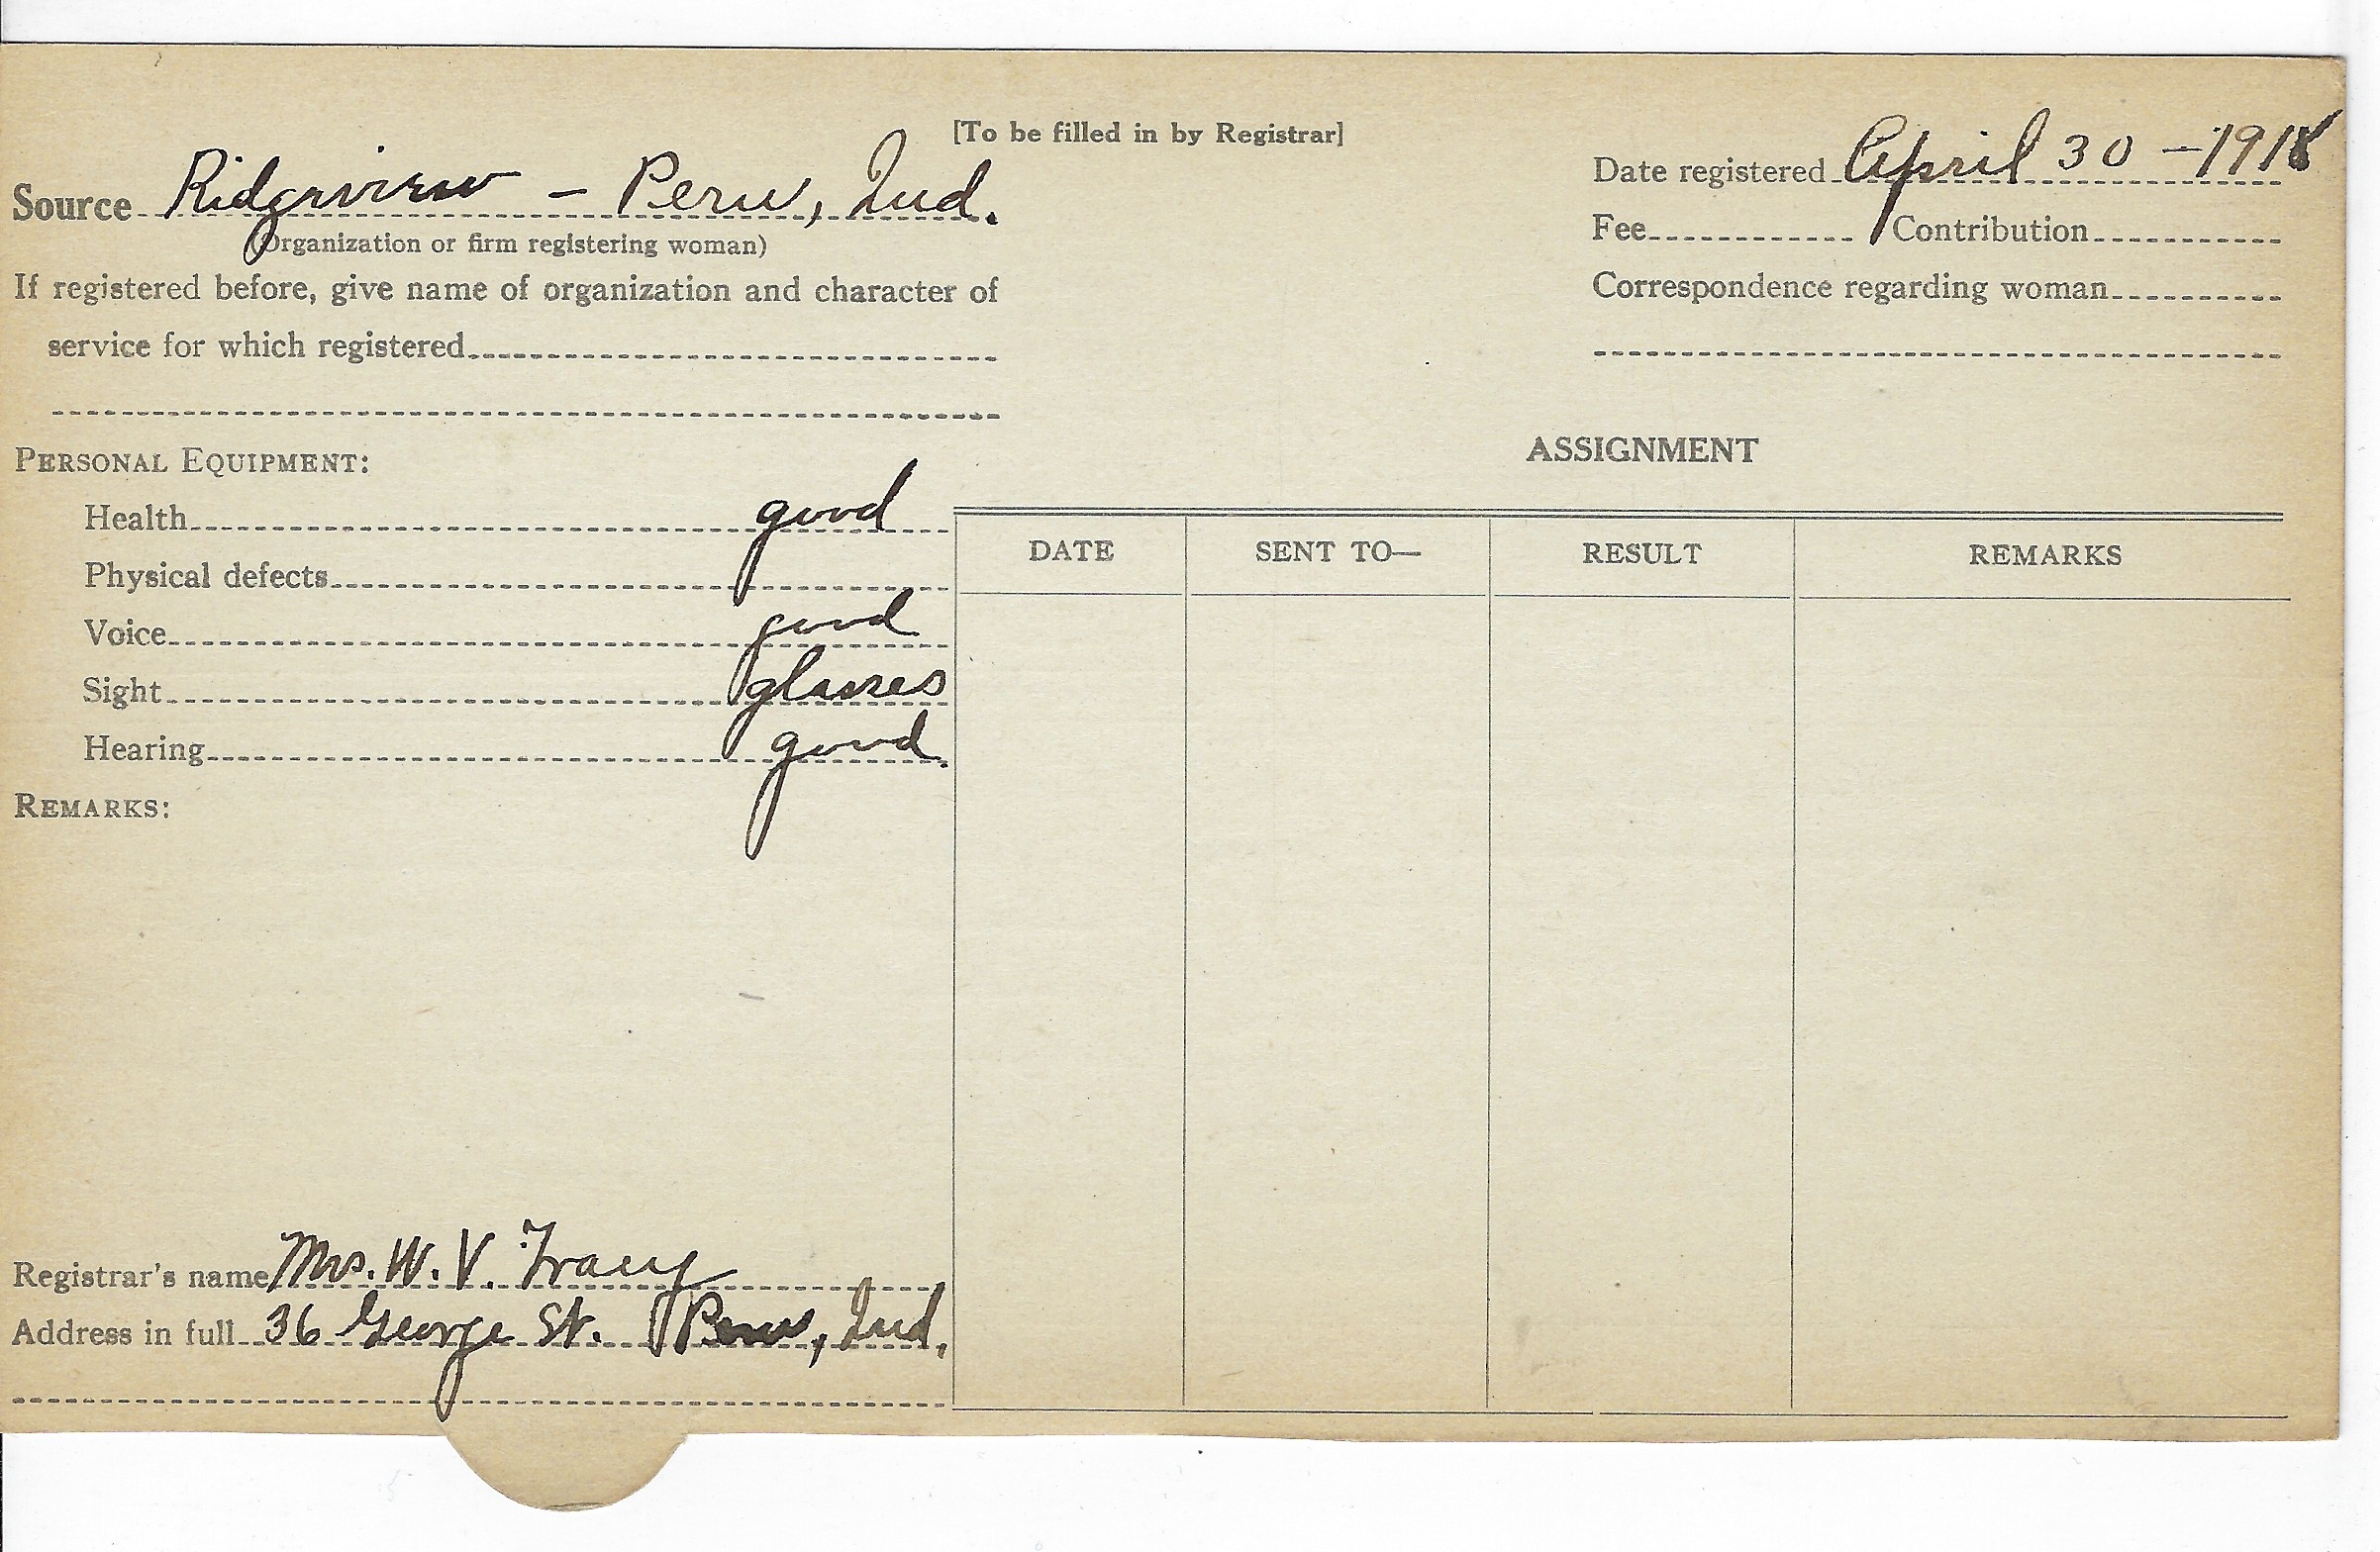 [To be filled in by Registrar]
Source Ridgeview – Peru, Ind.
(Organization or firm registering woman)
If registered before, give name of organization and character of
service for which registered
Date registered April 30 – 1918
Fee Contribution
Correspondence regarding woman
PERSONAL EQUIPMENT:
Health good
Physical defects
Voice good
Sight glasses
Hearing good
REMARKS:
ASSIGNMENT
DATE SENT TO— RESULT REMARKS
Registrar's name Mrs. W. V. Tracy
Address in full 36 George St. Peru, Ind.